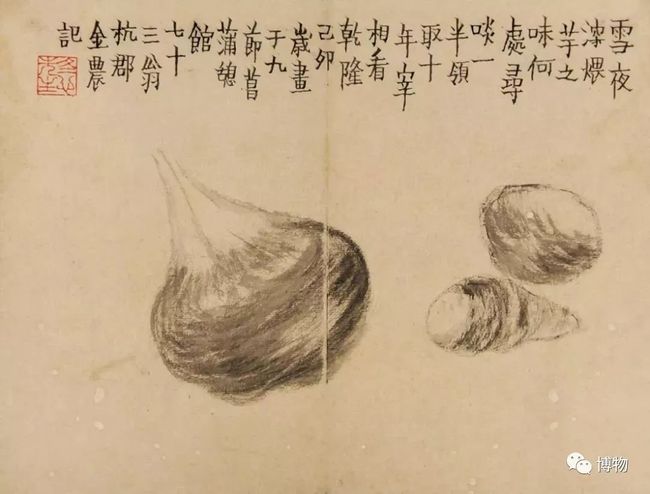 雪夜
深煨
芋之
味何
處尋
啖一
半領
取十
年宰
相看
乾隆
己卯
歲畫
于九
莭菖
蒲憩
館
七十
三翁
杭郡
金農
記
博物